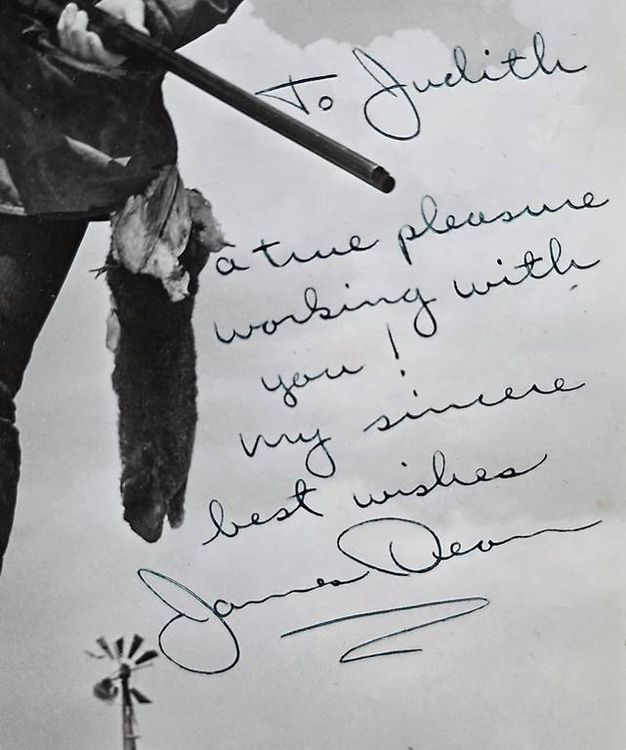 To Judith
a true pleasure
working with
you!
my sincere
best wishes
James Dean